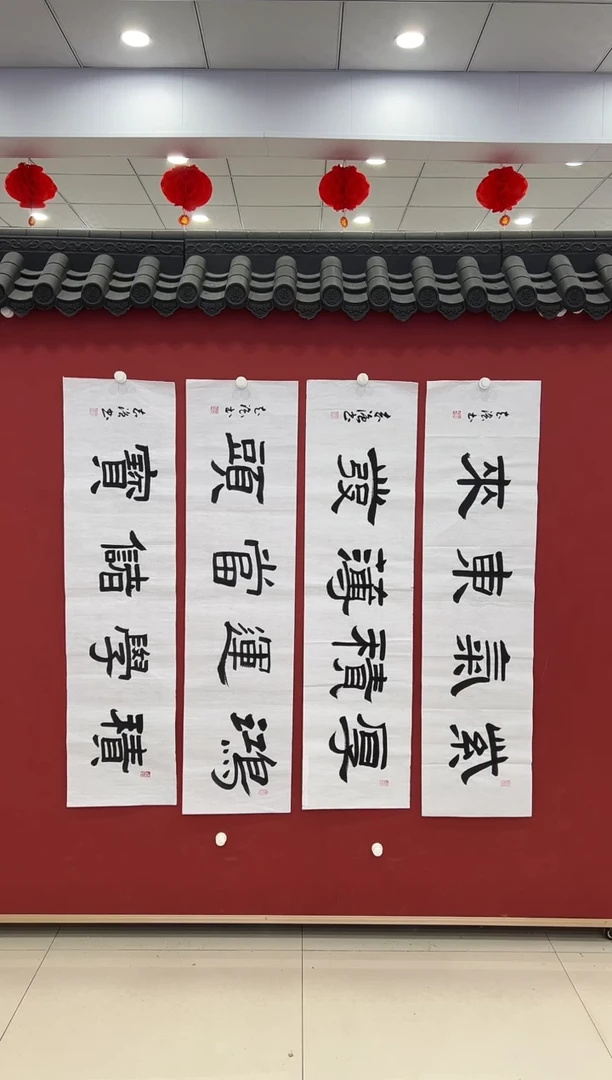 紫氣東來
厚積薄發
鴻運當頭
積學儲寶